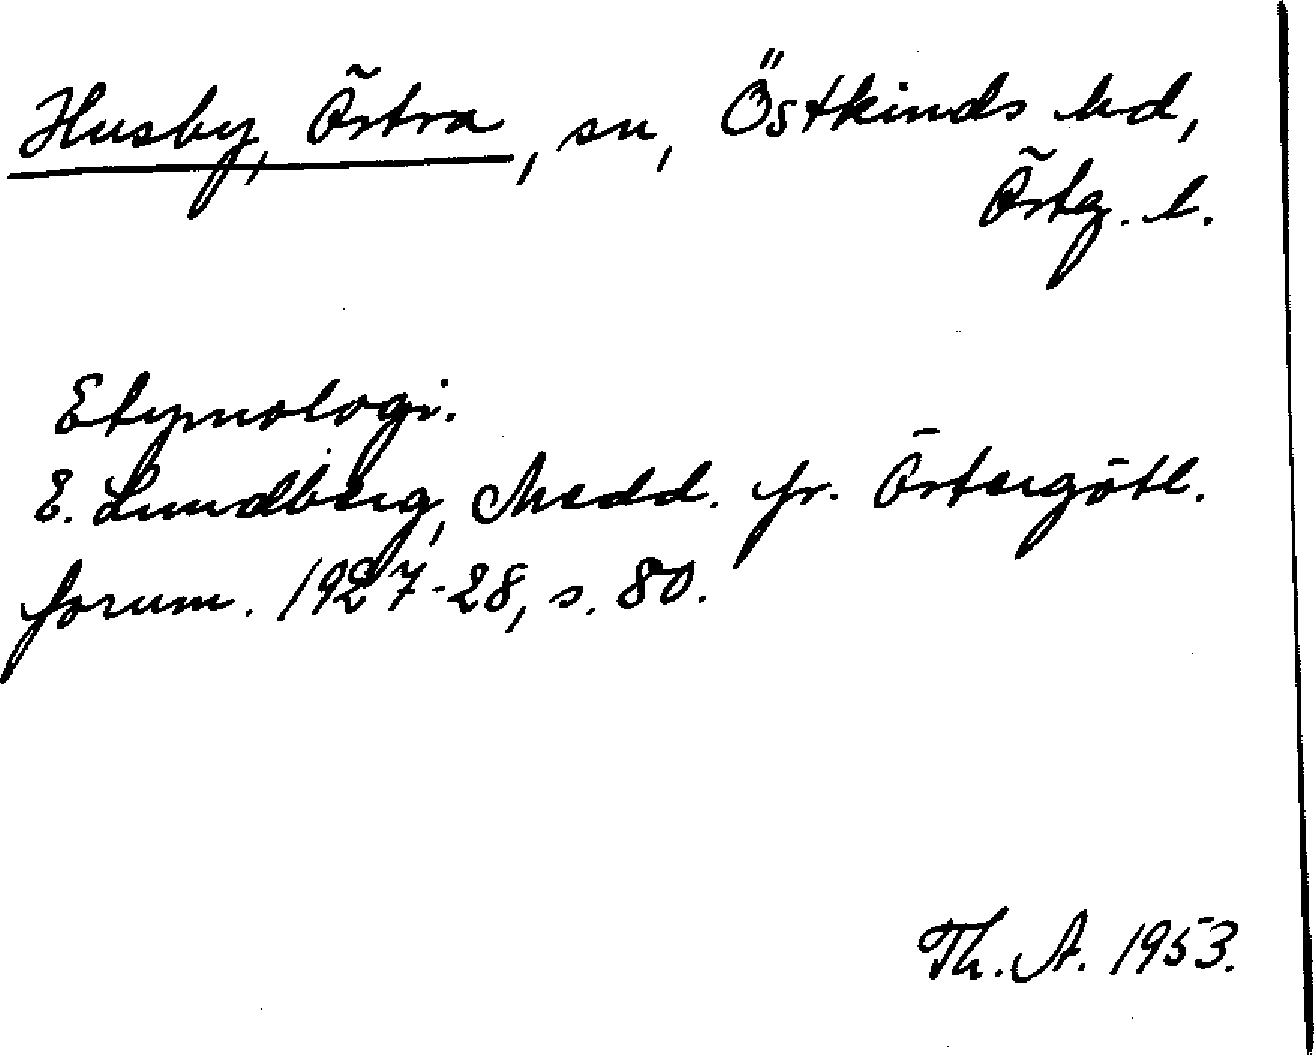 Husby, Östra, sn, Östkinds hd,
Östg. l.
Etymologi.
E. Lundberg, Medd. fr. Östergötl.
fornm. 1927-28, s. 80.
Th. A. 1953.